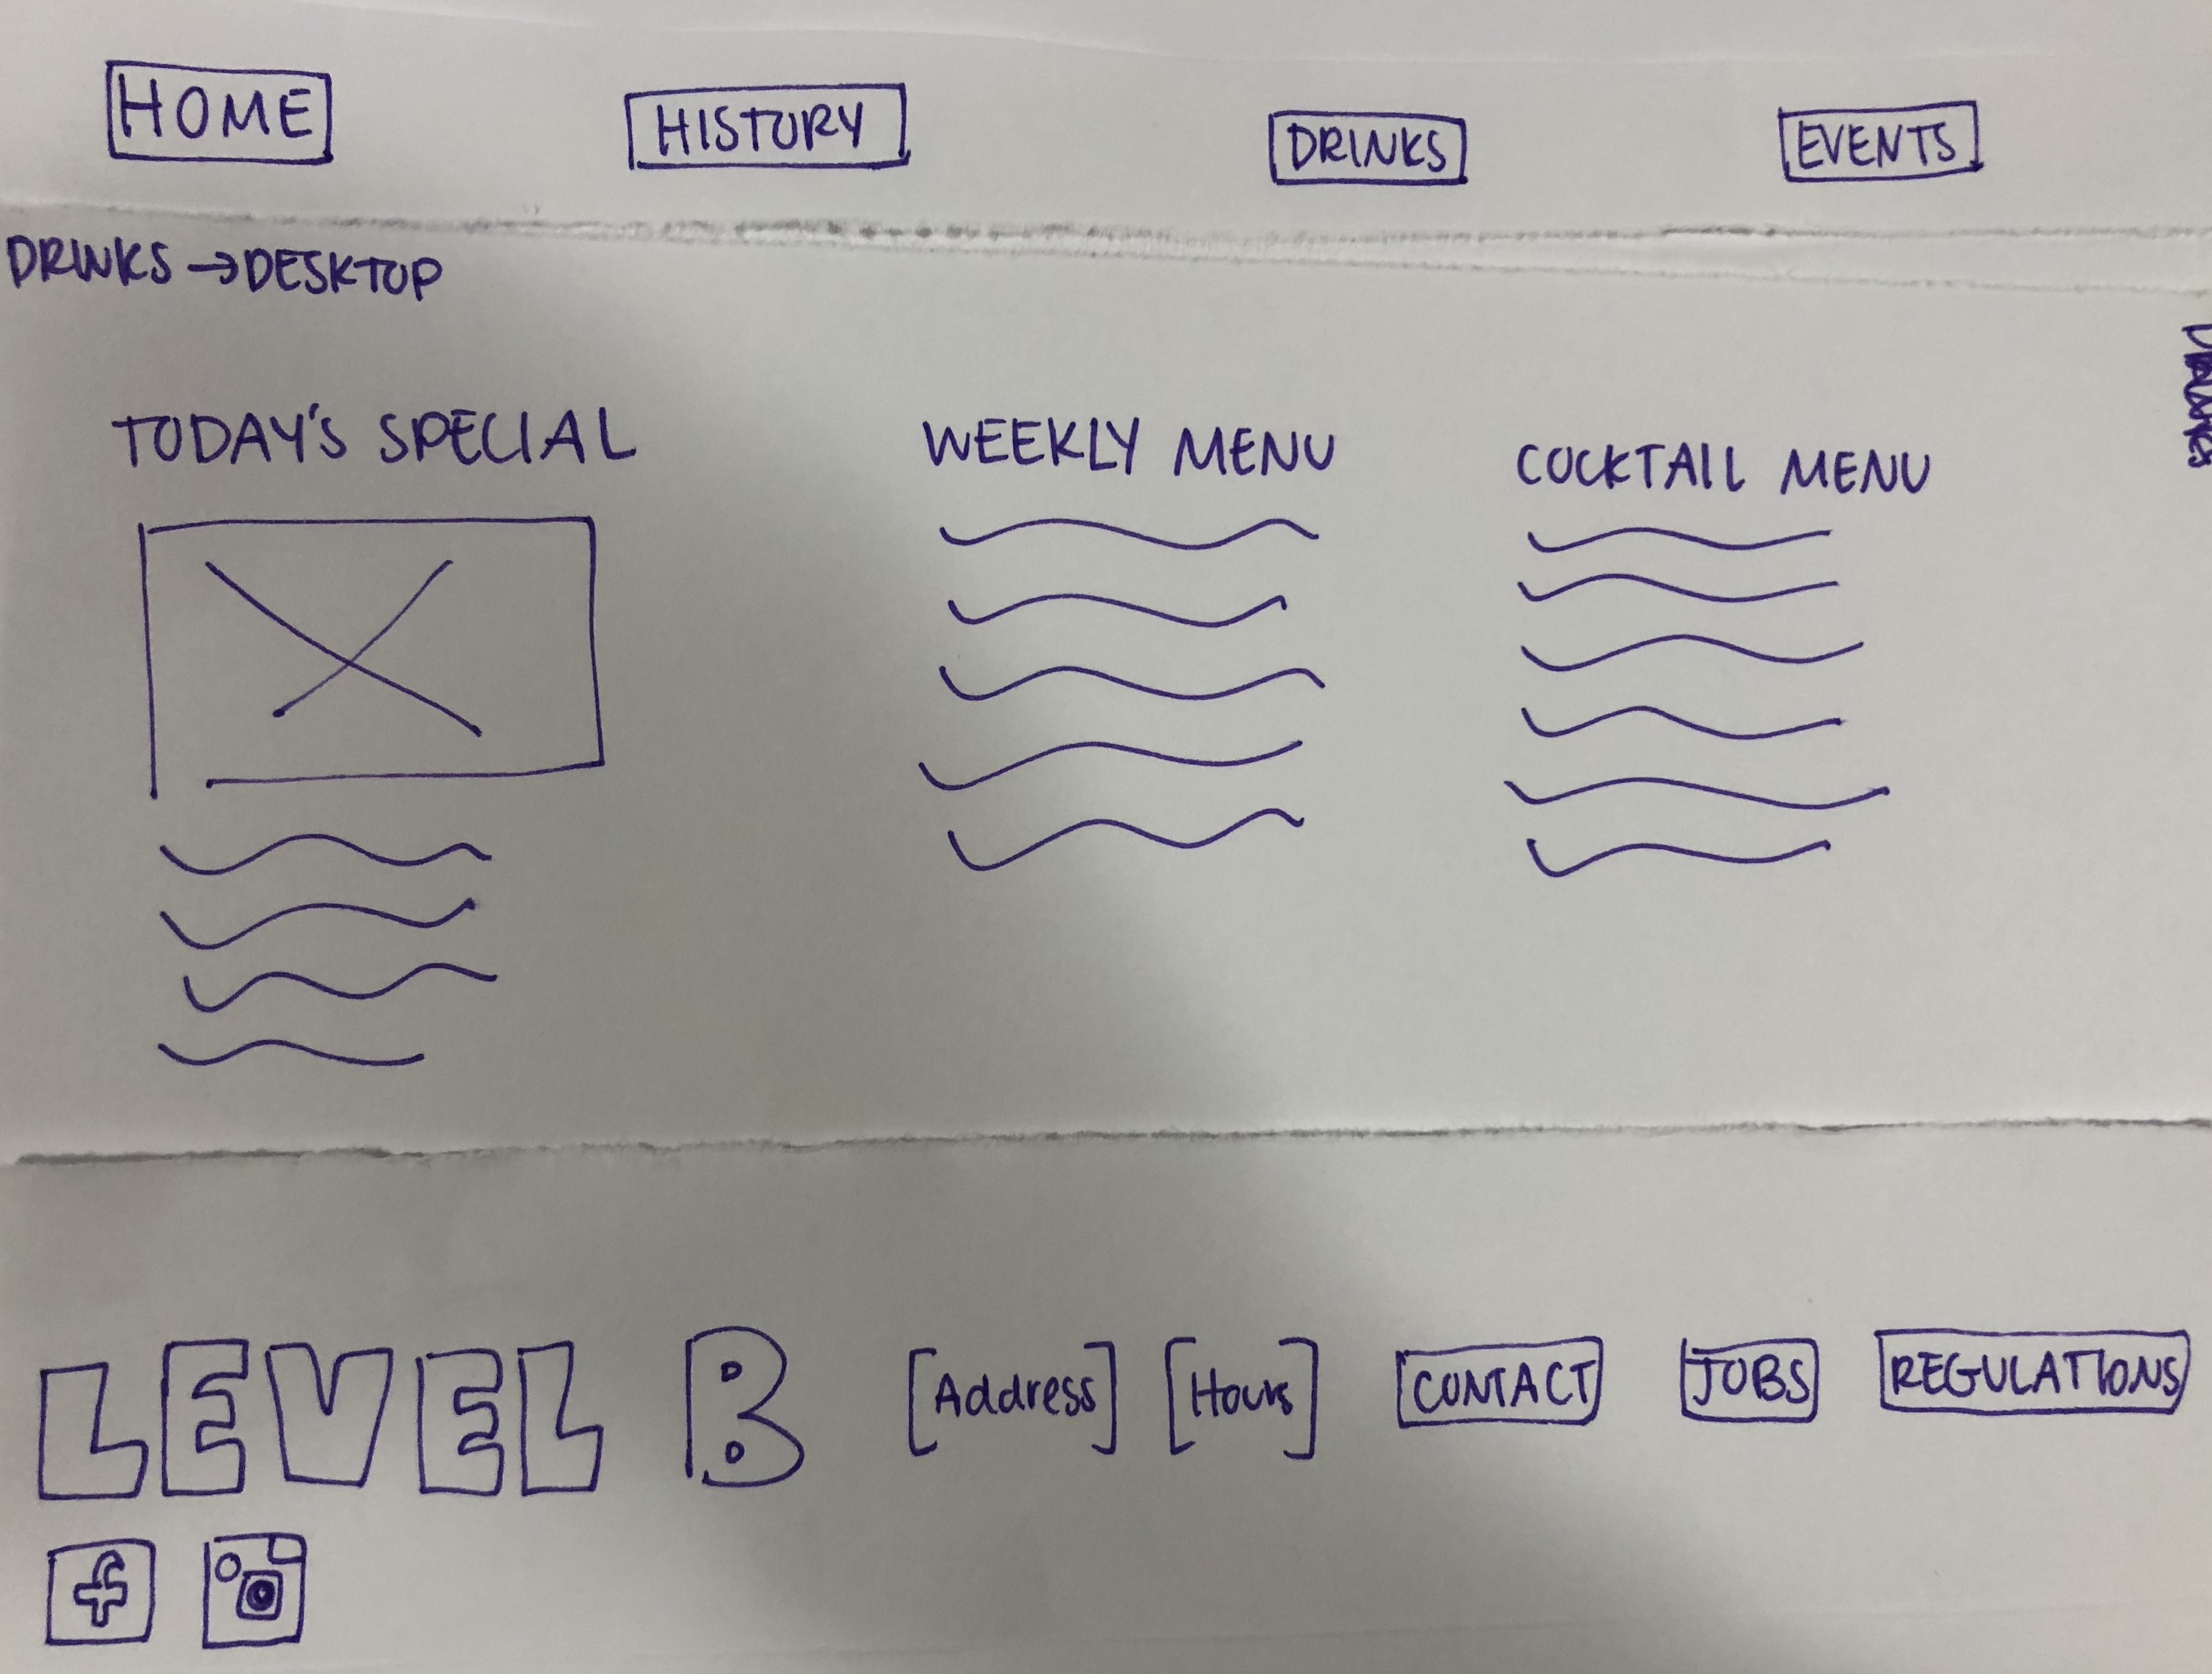 HOME HISTORY DRINKS EVENTS
DRINKS → DESKTOP
TODAY'S SPECIAL WEEKLY MENU COCKTAIL MENU
LEVEL B [Address] [Hours] CONTACT JOBS REGULATIONS
f